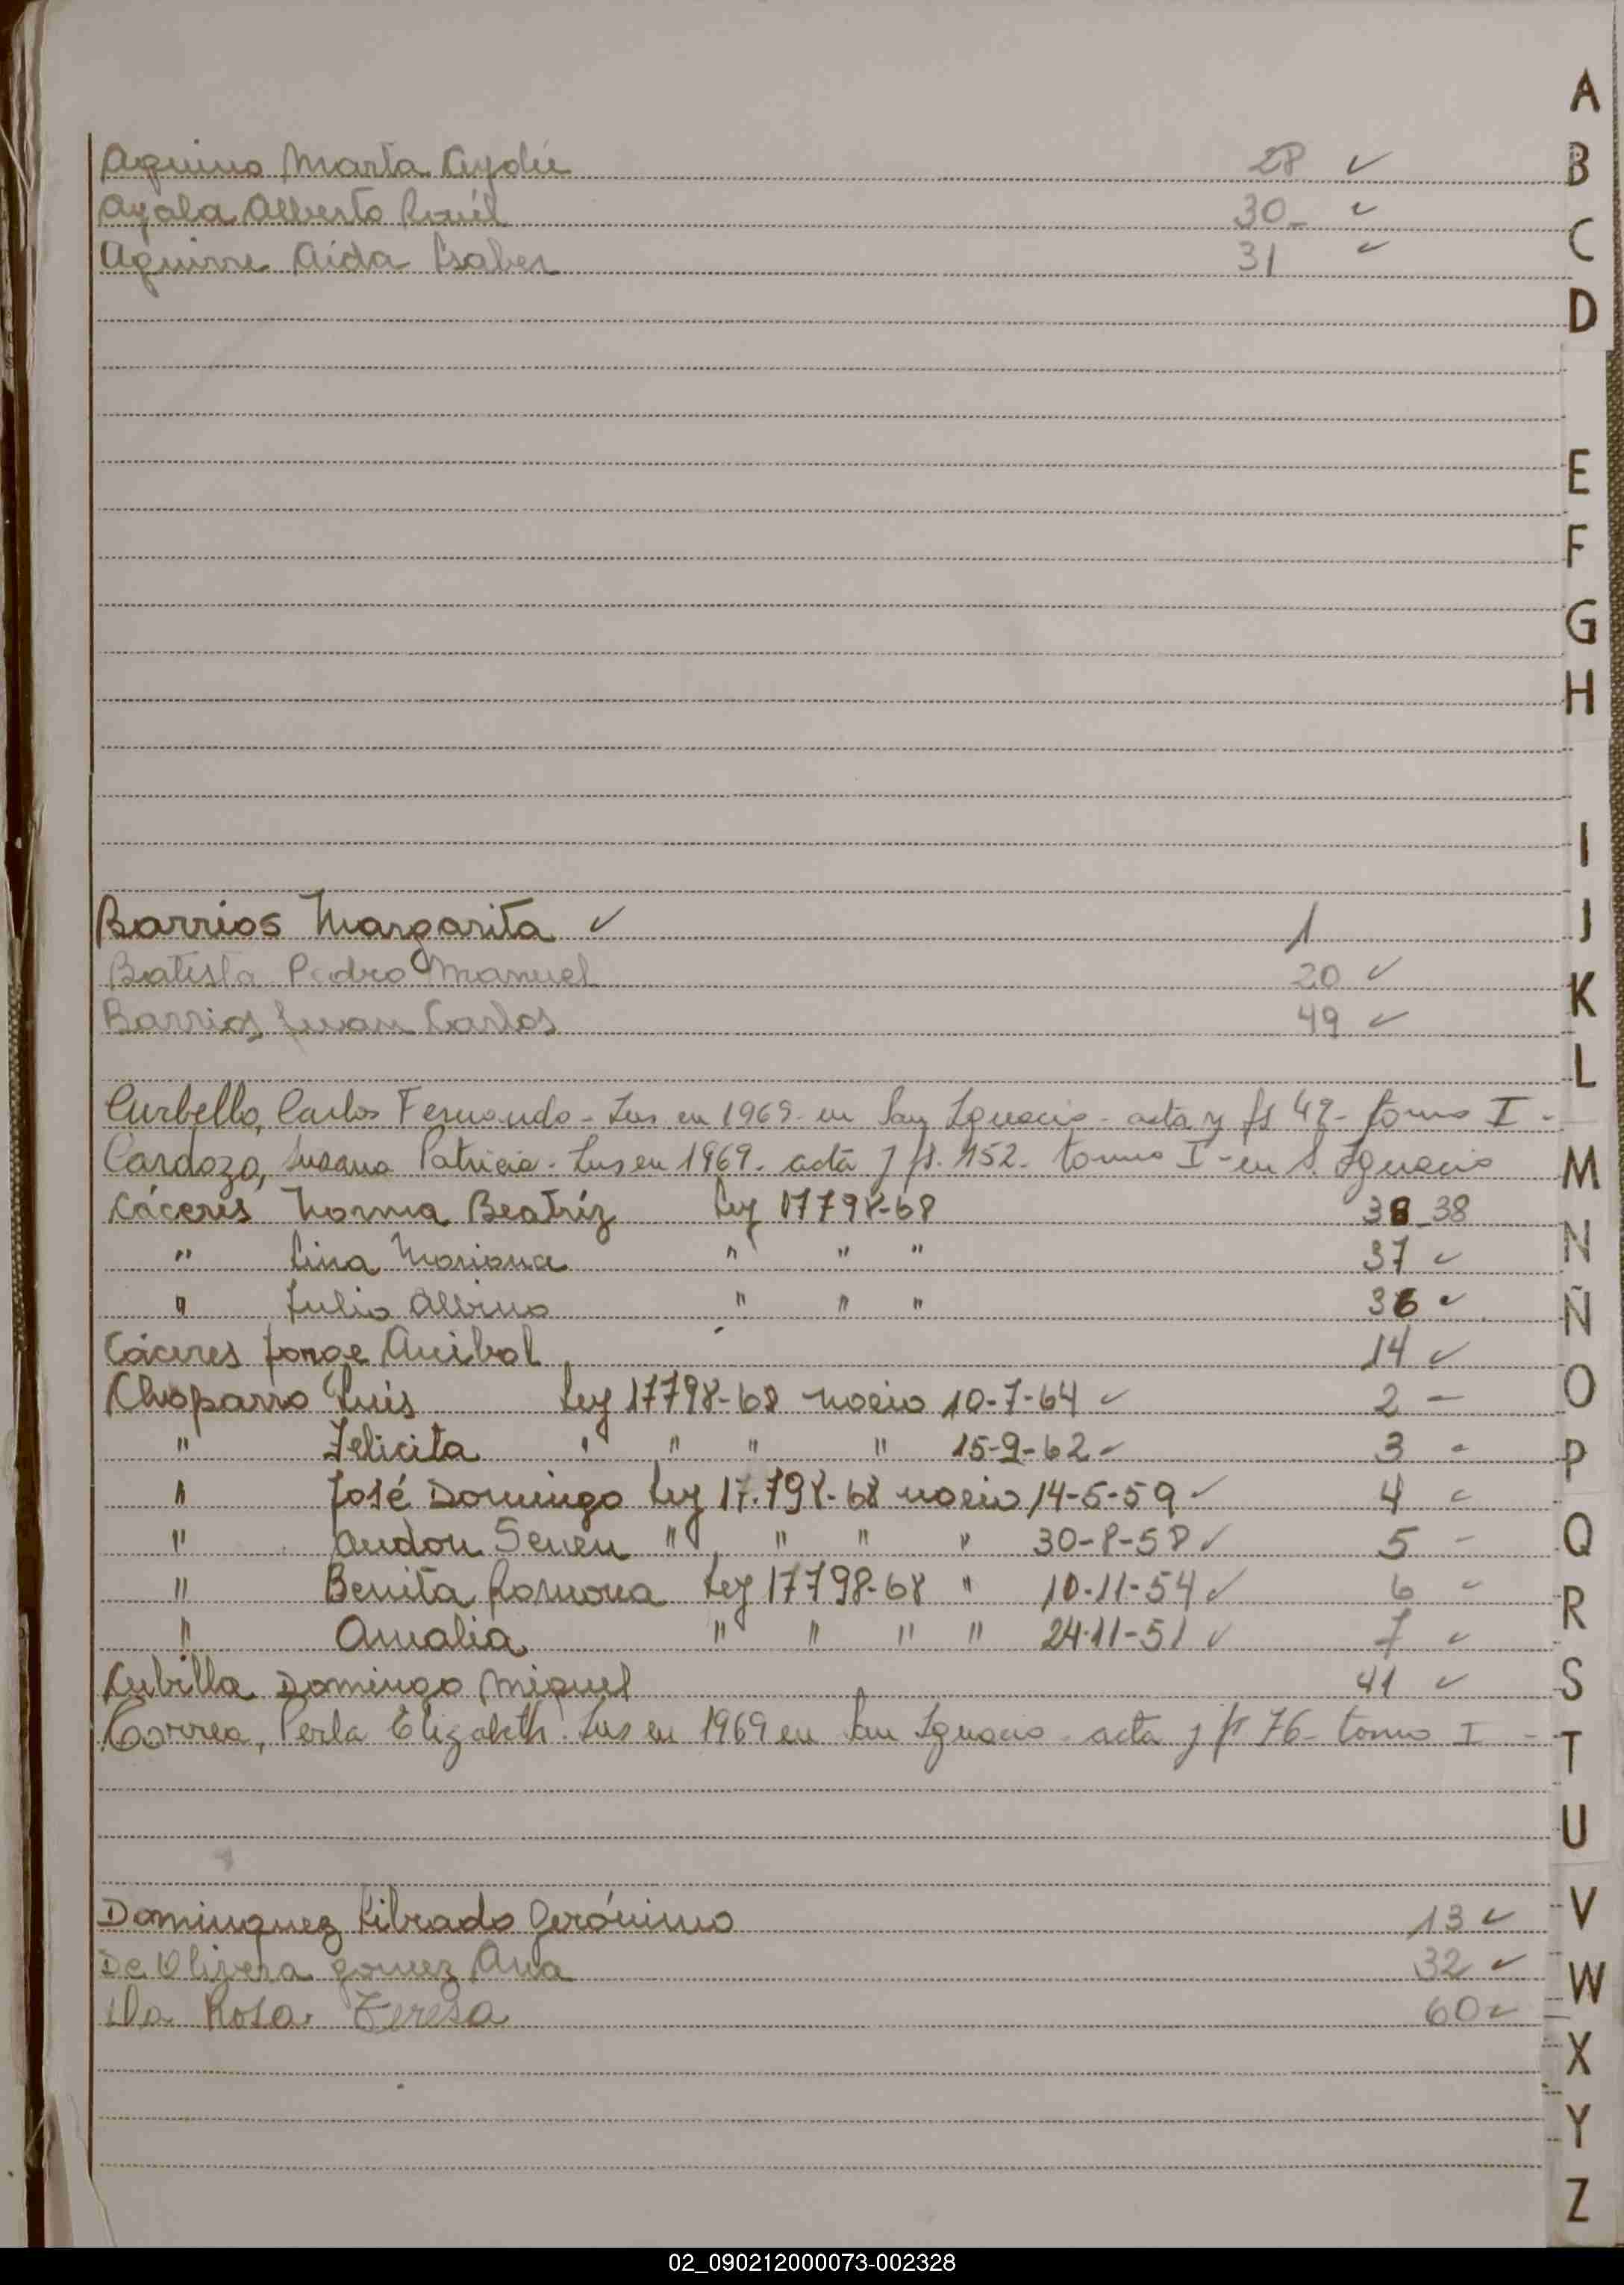 Aquino Marta Aydée 28 ✓
Ayala Alberto Raúl 30_ ✓
Aguirre Aída Isabel 31 ✓
Barrios Margarita ✓ 1
Batista Pedro Manuel 20 ✓
Barrios Juan Carlos 49 ✓
Curbello, Carlos Fernando - Ins en 1969 - en San Ignacio - acta y fs 42 - tomo I -
Cardozo, Susana Patricia - Ins en 1969 - acta y fs. 152 - tomo I - en S. Ignacio
Cáceres Norma Beatríz Ley 17798-68 38_38
" Lina Mariana " " " 37 ✓
" Julio Albino " " " 36 ✓
Cáceres Jorge Anibal 14 ✓
Chaparro Luis Ley 17798-68 nació 10-7-64 ✓ 2 -
" Felicita " " " " 15-9-62 ✓ 3 -
" José Domingo Ley 17.798-68 nació 14-5-59 ✓ 4 ✓
" " " " " 30-8-58 ✓ 5 -
" Benita Ramona Ley 17798-68 " 10-11-54 ✓ 6 ✓
" Amalia " " " " 24-11-51 ✓ 7 ✓
Cubilla Domingo Miguel 41 ✓
Correa, Perla Elizabeth. Ins en 1969 en San Ignacio - acta y fs 76 - tomo I -
Dominguez Librado Gerónimo 13 ✓
De Olivera gomez Ana 32 ✓
Da Rosa Teresa 60 ✓
A
B
C
D
E
F
G
H
I
J
K
L
M
N
Ñ
O
P
Q
R
S
T
U
V
W
X
Y
Z
02_090212000073-002328